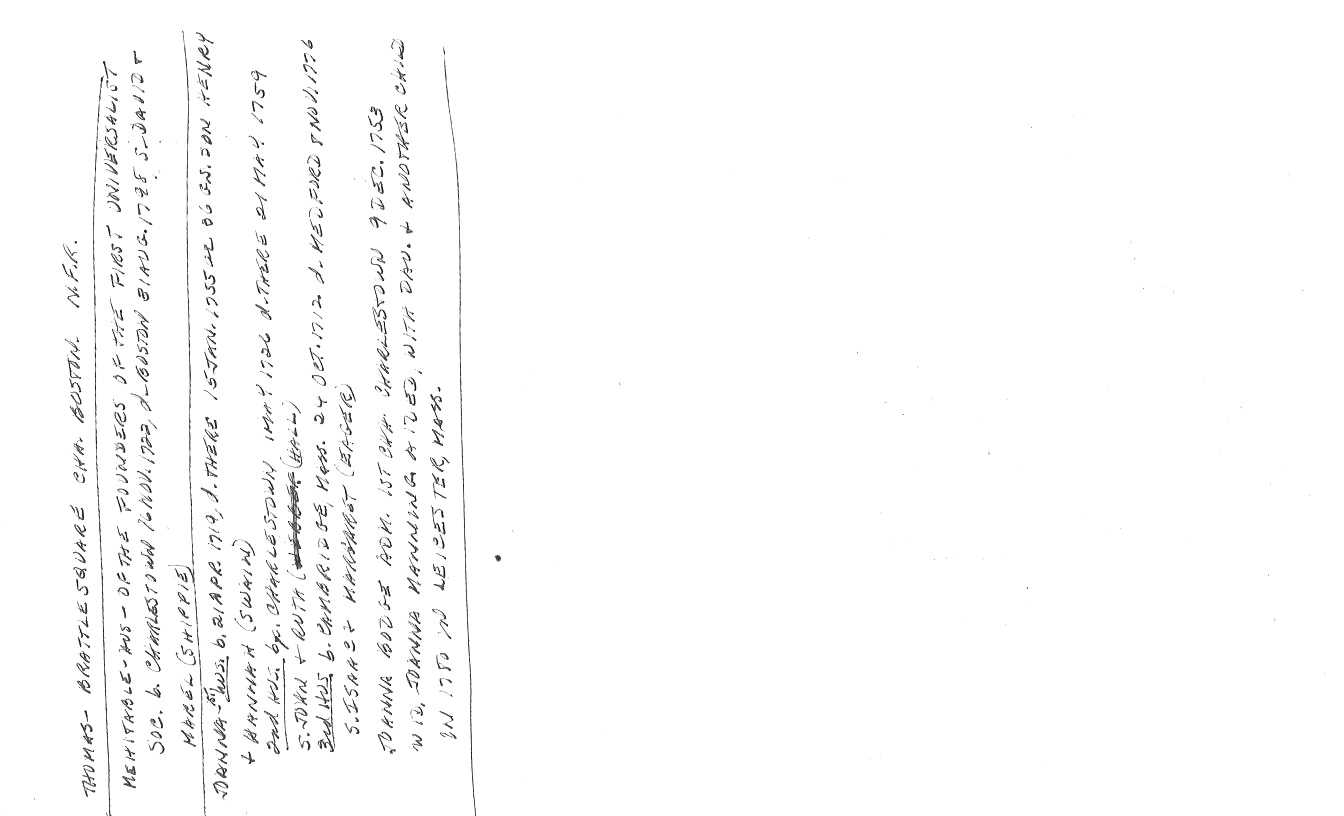 THOMAS - BRATTLE SQUARE CHH. BOSTON. N.F.R.
MEHITABLE - HUS - OF THE FOUNDERS OF THE FIRST UNIVERSALIST
SOC. b. CHARLESTOWN 16 NOV. 1722, d. BOSTON 31 AUG. 1798 S. DAVID +
MABEL (SHIPPIE)
JOANNA - 1st HUS. b. 21 APR. 1719, d. THERE 15 JAN. 1755 36 S. JON HENRY
+ HANNAH (SWAIN)
2nd HUS. b. CHARLESTOWN 1 MAY 1726 d. THERE 21 MAY 1759
S. JOHN + RUTH (HALL)
3rd HUS b. CAMBRIDGE, MASS. 24 OCT. 1712 d. MEDFORD 8 NOV. 1776
S. ISAAC + MARGARET (EAGER)
JOANNA ADM. 1ST CHH. CHARLESTOWN 9 DEC. 1753
WID. JOANNA MANNING DIED, WITH DAU. + ANOTHER CHILD
IN 1780 IN LEICESTER, MASS.